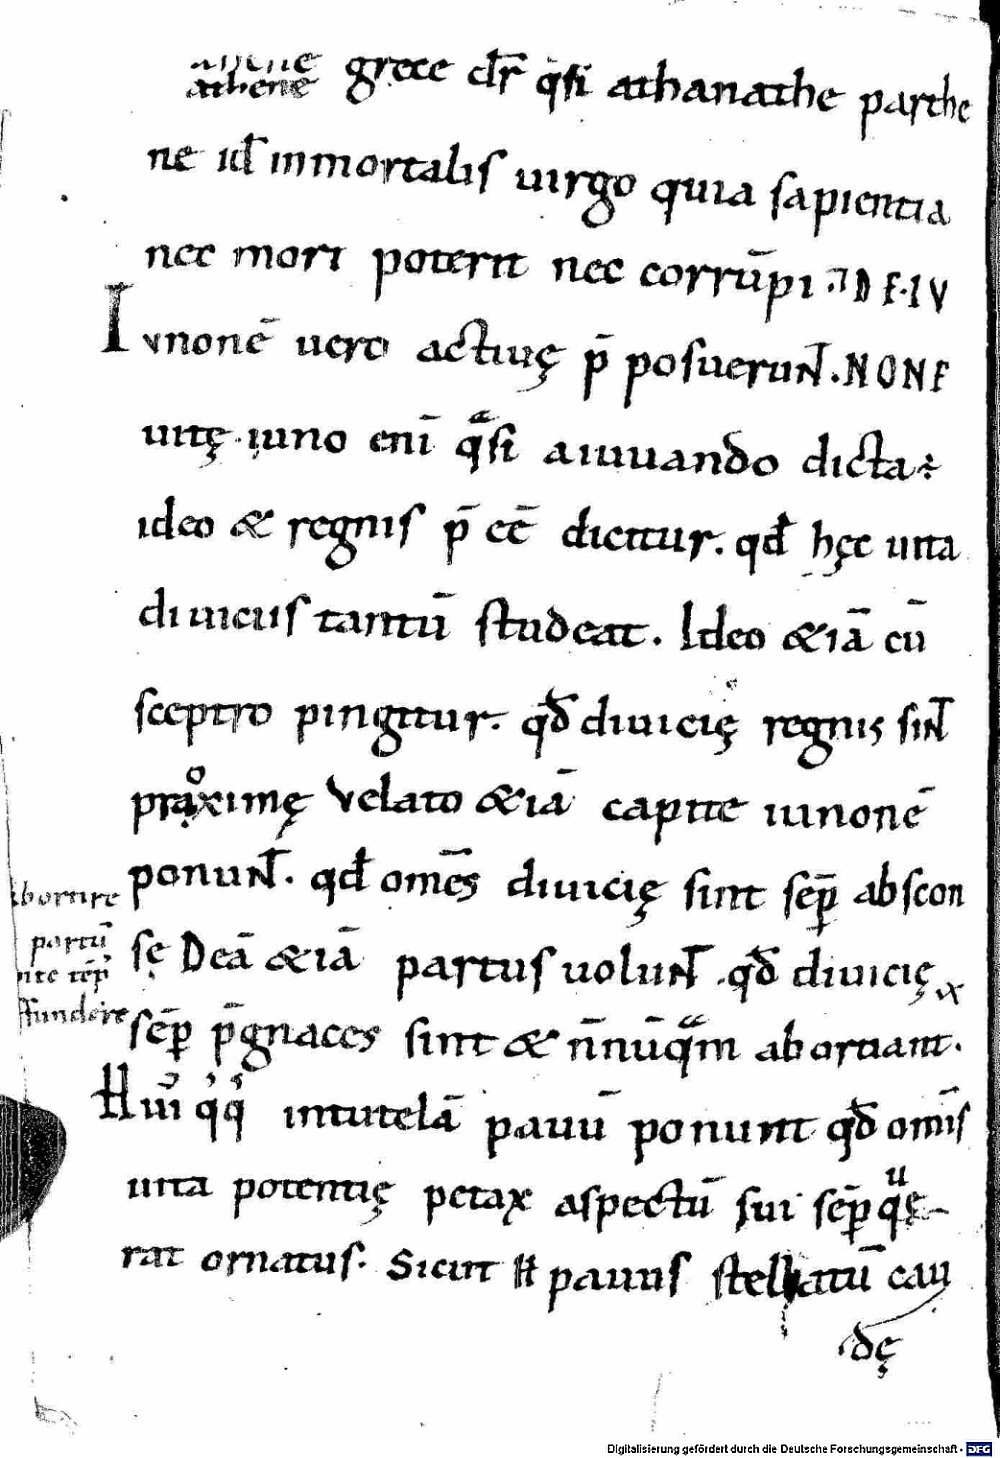 athene grece dr̄ q̄si athanathe parthe
ne id̄ inmortalis uirgo quia sapientia
nec mori poterit nec corrūpi. DE IV
Iunonē uero actiuę p̄ posuerunt̄. NONE
uitę. iuno eni̅ qᵃsi aiuuando dicta÷
ideo & regnis p̄ eē dicitur. qd̄ hęc uita
diuiciis tantū studeat. Ideo &iā cū
sceptro pingitur. qd̄ diuicię regnis sint̄
proximę Velato &iā capite iunonē
ponunt̄. qd̄ om̄es diuicię sint sēp abscon
sę Deā &iā partus uolunt̄. qd̄ diuicię
sēp p̄gnaces sint & n̄nūqᵃm abortiant.
abortire
partū
ante tēp̄
effundere
Hui᾽ q᾽q᾽ intutelā pauū ponunt qd̄ om̄is
uita potentię petax aspectū sui sēp quę
rat ornatus. Sicut H̄ pauus stellatū cau
dę
Digitalisierung gefördert durch die Deutsche Forschungsgemeinschaft - DFG